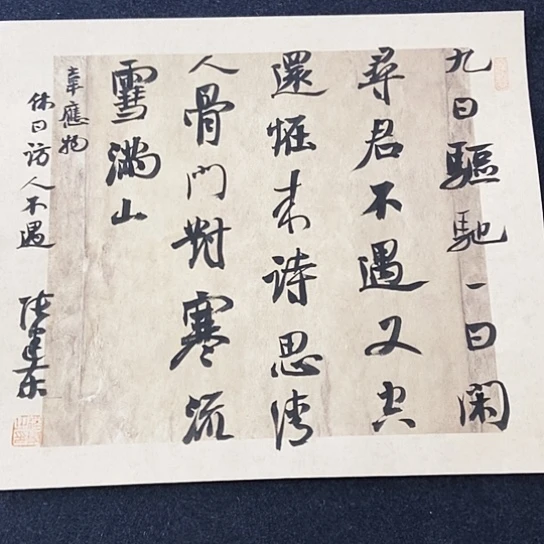 九日驅馳一日閑
尋君不遇又空
還怪来詩思清
人骨門對寒流
雪滿山
韋應物
休日访人不遇